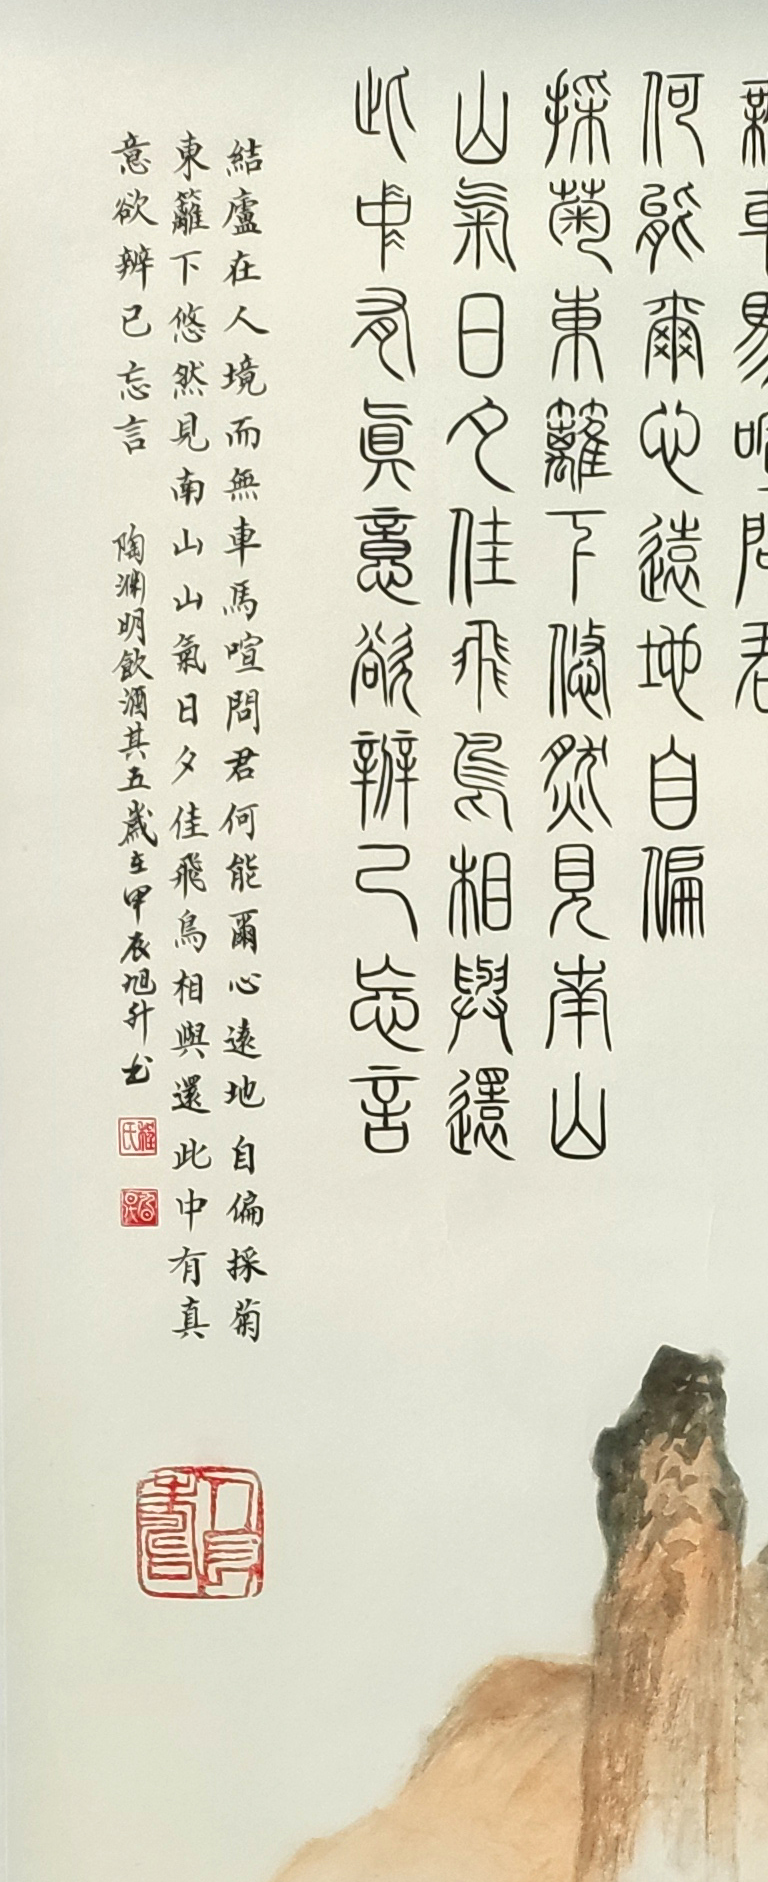 車馬喧問君
何能爾心遠地自偏
採菊東籬下悠然見南山
山氣日夕佳飛鳥相與還
此中有真意欲辨已忘言
結廬在人境而無車馬喧問君何能爾心遠地自偏採菊
東籬下悠然見南山山氣日夕佳飛鳥相與還此中有真
意欲辨已忘言 陶淵明飲酒其五歲在甲辰旭升书